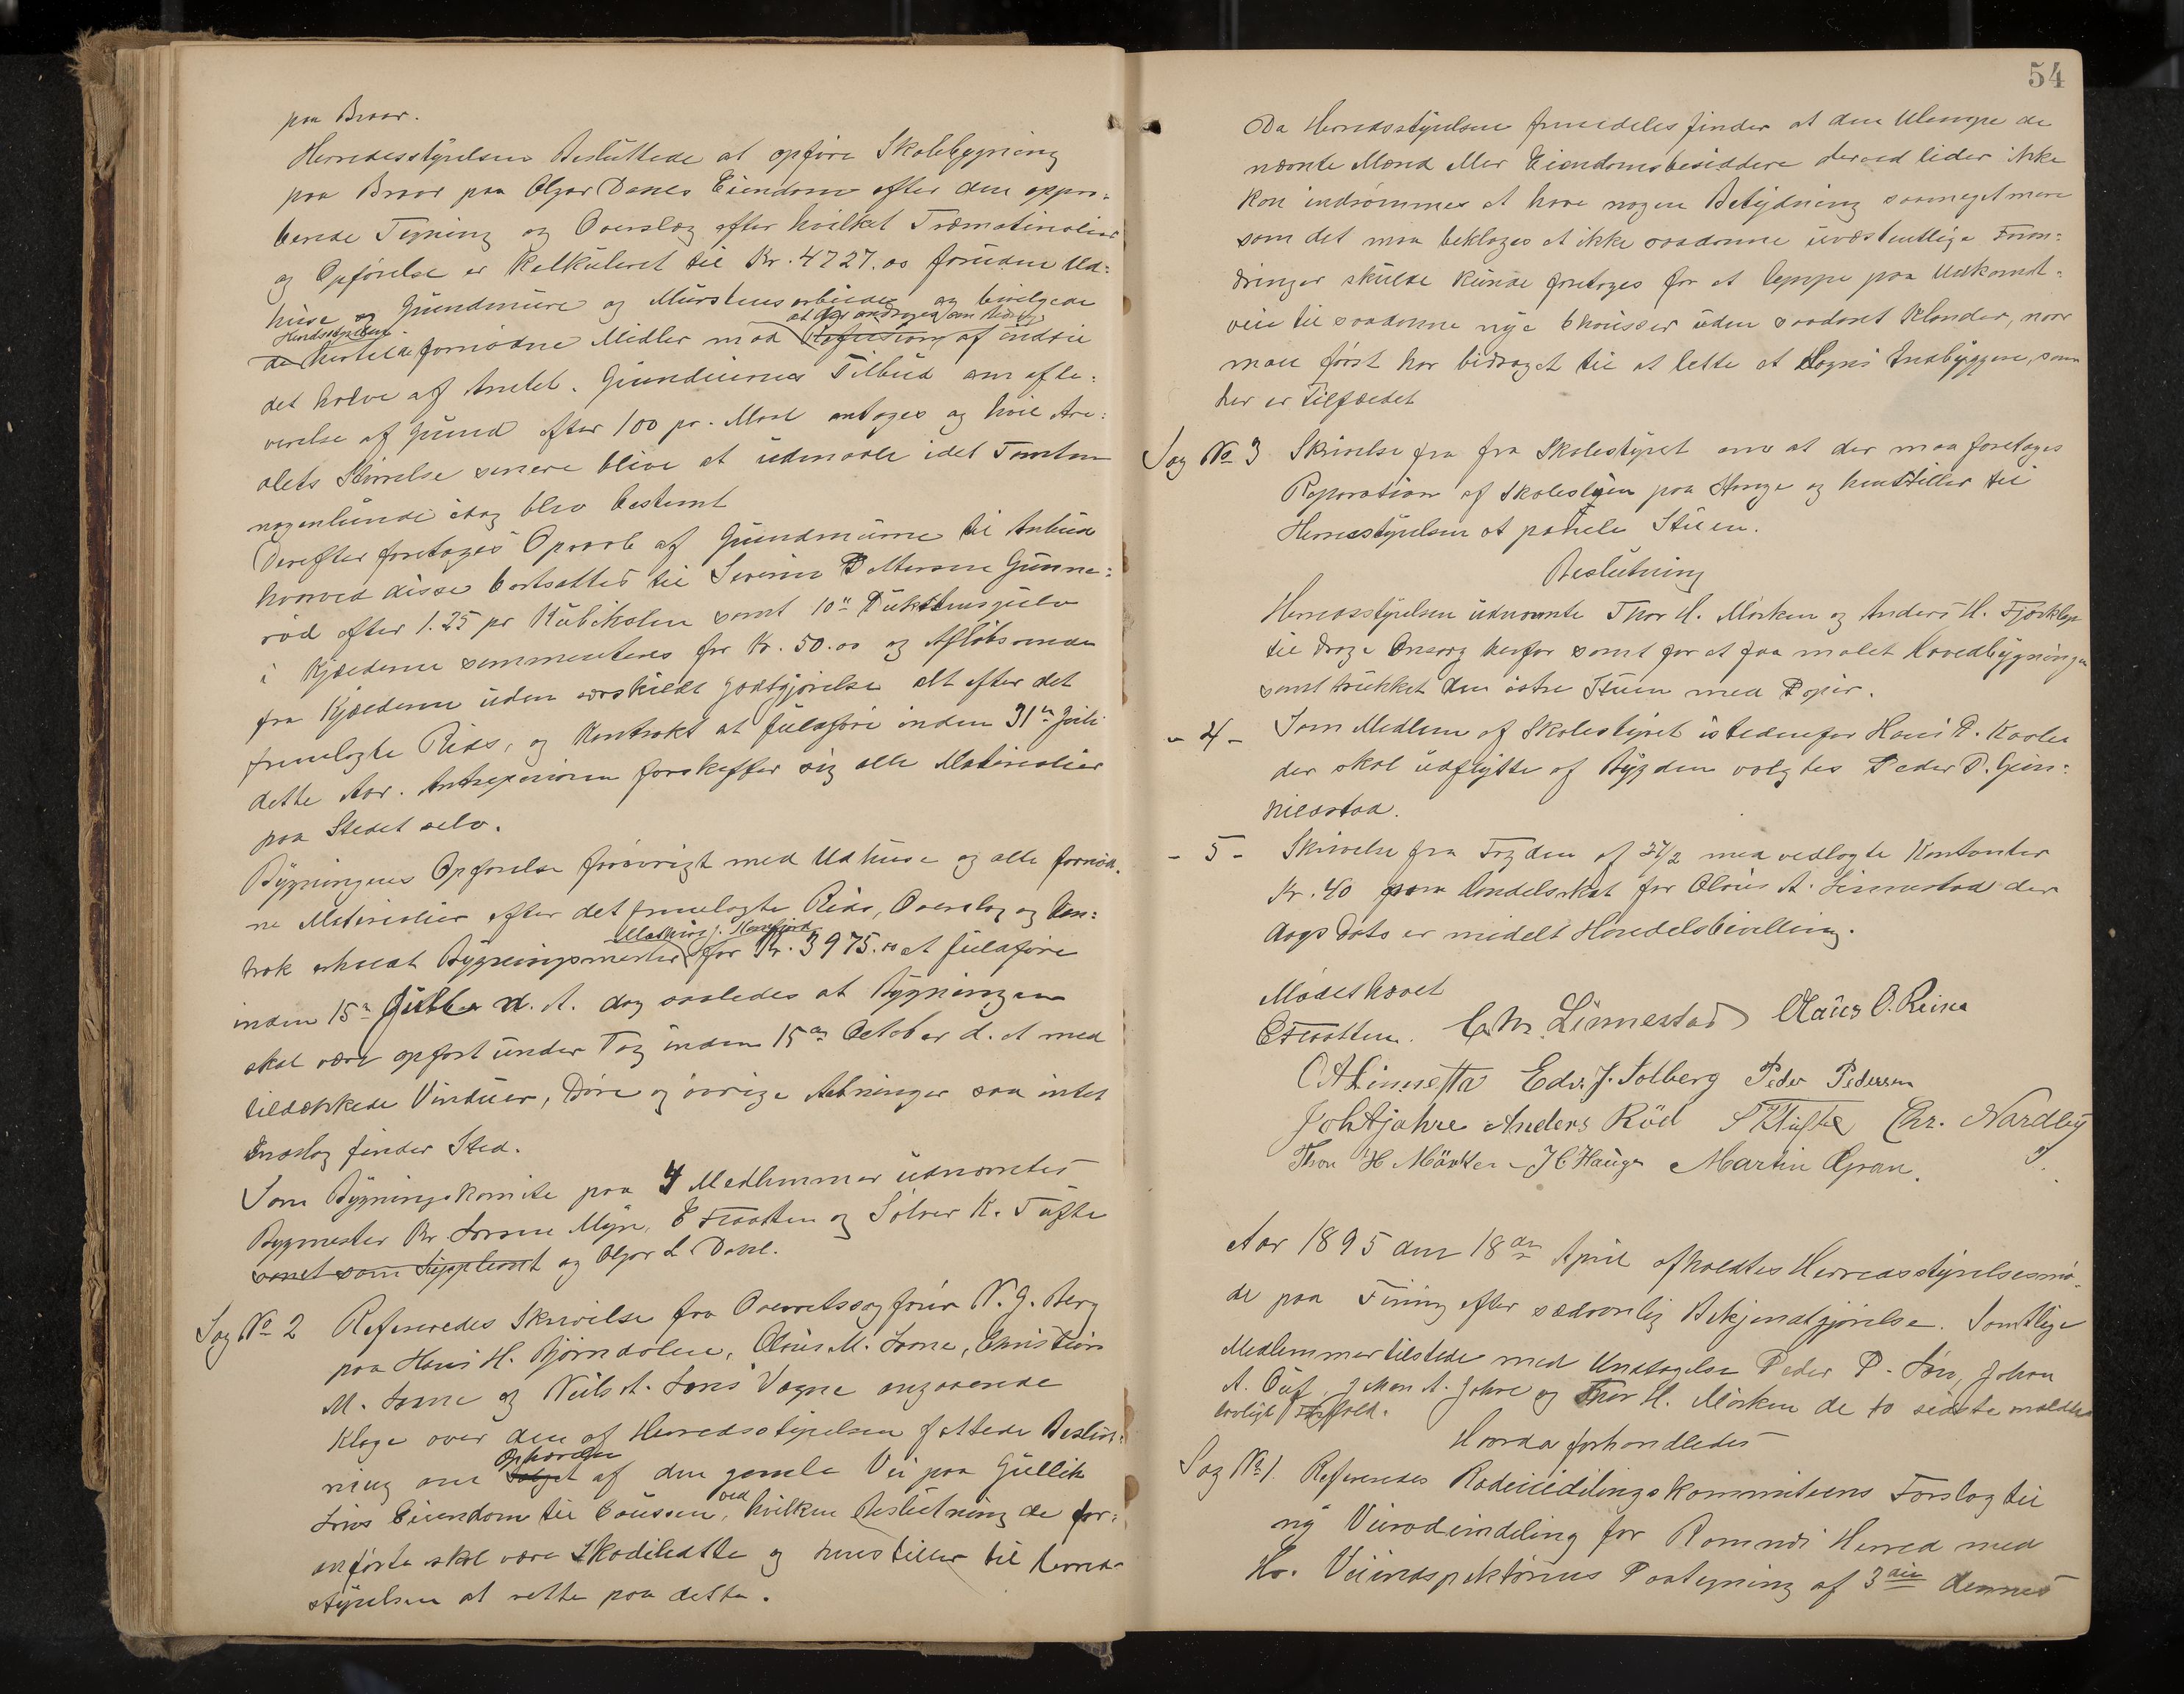 paa Braar.
Herredsstyrelsen Besluttede at opføre Skolebygning
paa Braar paa Olgar Dahls Eiendom efter den appro-
berede Tegning og Overslag efter hvilket Træmaterialier
og Opførelse er Kalkuleret til Kr. 4727.00 foruden Ud-
huse og Grundmure og Murstensarbeide og bevilgede
Herredsstyrelsen at der andrages om Bidrag
de hertil fornødne Midler mod Refusion af indtil
det halve af Amtet. Grundeiernes Tilbud om afle-
verelse af Grund efter 100 pr. Maal antages og hvis Are-
alets Størrelse senere blive at udmaale idet Tomten
nogenlunde idag blev bestemt
Derefter foretoges Opraab af Grundmurene til Anbud
hvorved disse bortsattes til Severin Pettersen Gunne-
rød efter 1.25 pr Kubikalen samt 10"
i Kjælderen sementeres for Kr. 50.00 og Afløbsrende
fra Kjælderen uden særskildt godtgjørelse alt efter det
fremlagte Rids, og Kontrakt at fuldføre inden 31te Juli
dette Aar. Entreprenøren forskaffer sig alle Materialier
paa Stedet selv.
Bygningens Opførelse forøvrigt med Udhuse og alle fornød-
ne Materialier efter det fremlagte Rids, Overslag og Kon-
Mathias J.
trak erholdt Bygningsmester for Kr. 3975.00 at fuldføre
inden 15de n. A. dog saaledes at Bygningen
skal være opført under Tag inden 15de October d. A med
tildækkede Vinduer, Døre og øvrige Aabninger saa intet
Indslag finder Sted.
Som Bygningskomite paa 4 Medlemmer udnævntes
Bygmester Kr Larsen Myre, E Fraatten og Sølver K. Tufte
samt som Suppleant og Olgar L Dahl.
Sag No 2 Refereredes Skrivelse fra Overretssagfører N. J. Berg
paa Hans H. Bjørndalen, Olaus M. Sørne, Christian
M. Sørne og Niels A. Søns Vegne angaaende
Klage over den af Herredsstyrelsen fattede Beslut-
Ophævelse
ning om Salget af den gamle Vei paa Gullik
ved
Søns Eiendom til Caussen, hvilken Beslutning de for-
anførte skal være Skadelidte og henstiller til Herreds-
styrelsen at rette paa dette.
54
Da Herredsstyrelsen fremdeles finder at den Ulempe de
nævnte Mænd eller Eiendomsbesiddere derved lider ikke
kan indrømmes at have nogen Betydning saameget mere
som det maa beklages at ikke saadanne uvæsentlige Foran-
dringer skulde kunne foretages for at lempe paa Udkomst-
veie til saadanne nye Chausser uden saadant Klander, naar
man først har bidraget til at lette et Sogns Indbyggere, som
her er Tilfældet
Sag No 3 Skrivelse fra fra Skolestyret om at der maa foretages
Reparation af Skolestuen paa Hauge og henstiller til
Herredsstyrelsen at panele Stuen.
Beslutning
Herredsstyrelsen udnævnte Thor H. Mørken og Anders H.
til drage Omsorg herfor samt for at faa malet Hovedbygningen
samt trukket den østre Stuen med Papir.
- 4 - Som Medlem af Skolestyret istedenfor Hans P. Kaales
der skal udflytte af Bygden valgtes Peder P. Gun-
nildstad.
- 5 - Skrivelse fra Fogden af 27/2 med vedlagte Kontanter
Kr. 40 som Handelsskat for Olaus A. Linnestad der
dags Dato er midelt Handelsbevilling.
Mødet hævet
E Fraatten. C. M. Linnestad Olaus O. Reine
O A Linnestad Edv. J. Solberg Peder Pedersen
Joh Ajahre Anders Röd S K Tufte Chr. Nordby
Thor H Mörken - H C Hauge Martin Gran.
Aar 1895 den 18de April afholdtes Herredsstyrelsesmø-
de paa Fining efter sædvanlig Bekjendtgjørelse. Samtlige
Medlemmer tilstede med Undtagelse Peder P. Søn, Johan
A. Auf, Johan A. Jahre og Thor H. Mørken de to sidste meldte
lovligt Forfald.
Hvorda forhandledes
Sag No 1. Refereredes Rodeinddelingskommiteens Forslag til
ny Veirodeinddeling for Ramnæs Herred med
Hr. Veiinspektørens Paategning af 3die dennes